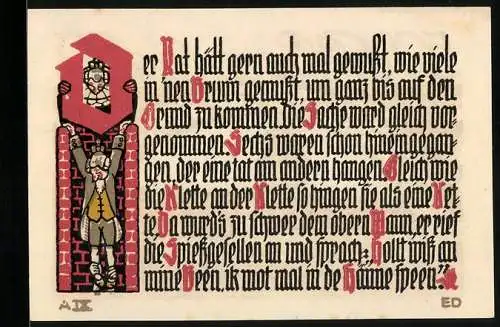 Der Rat hätt gern auch mal gewußt, wie viele
in'nen Brunn gemußt, um ganz bis auf den
Grund zu kommen. Die Sache ward gleich vor-
genommen. Sechs waren schon hineingegan-
gen, der eine tat am andern hangen. Gleich wie
die Klette an der Klette so hingen sie als eine Ket-
te. Da wurd's zu schwer dem obern Mann, er rief
die Spießgesellen an und sprach: Hollt wiß an
mine Been, ik mot mal in de Hänne speen."
A IX
ED